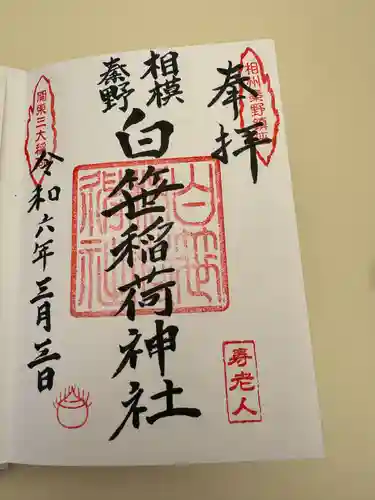 奉拝
相州秦野鎮座
相模
秦野
白笹稲荷神社
白笹稲荷神社
寿老人
関東三大稲荷
令和六年三月三日